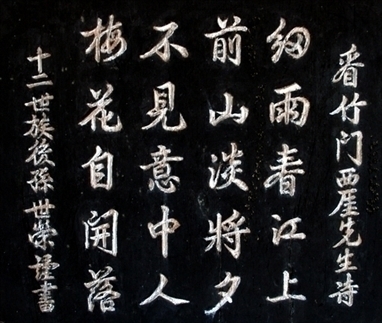 看竹门西厓先生诗
細雨春江上
前山淡將夕
不見意中人
梅花自開落
十二世族後孫世榮謹書